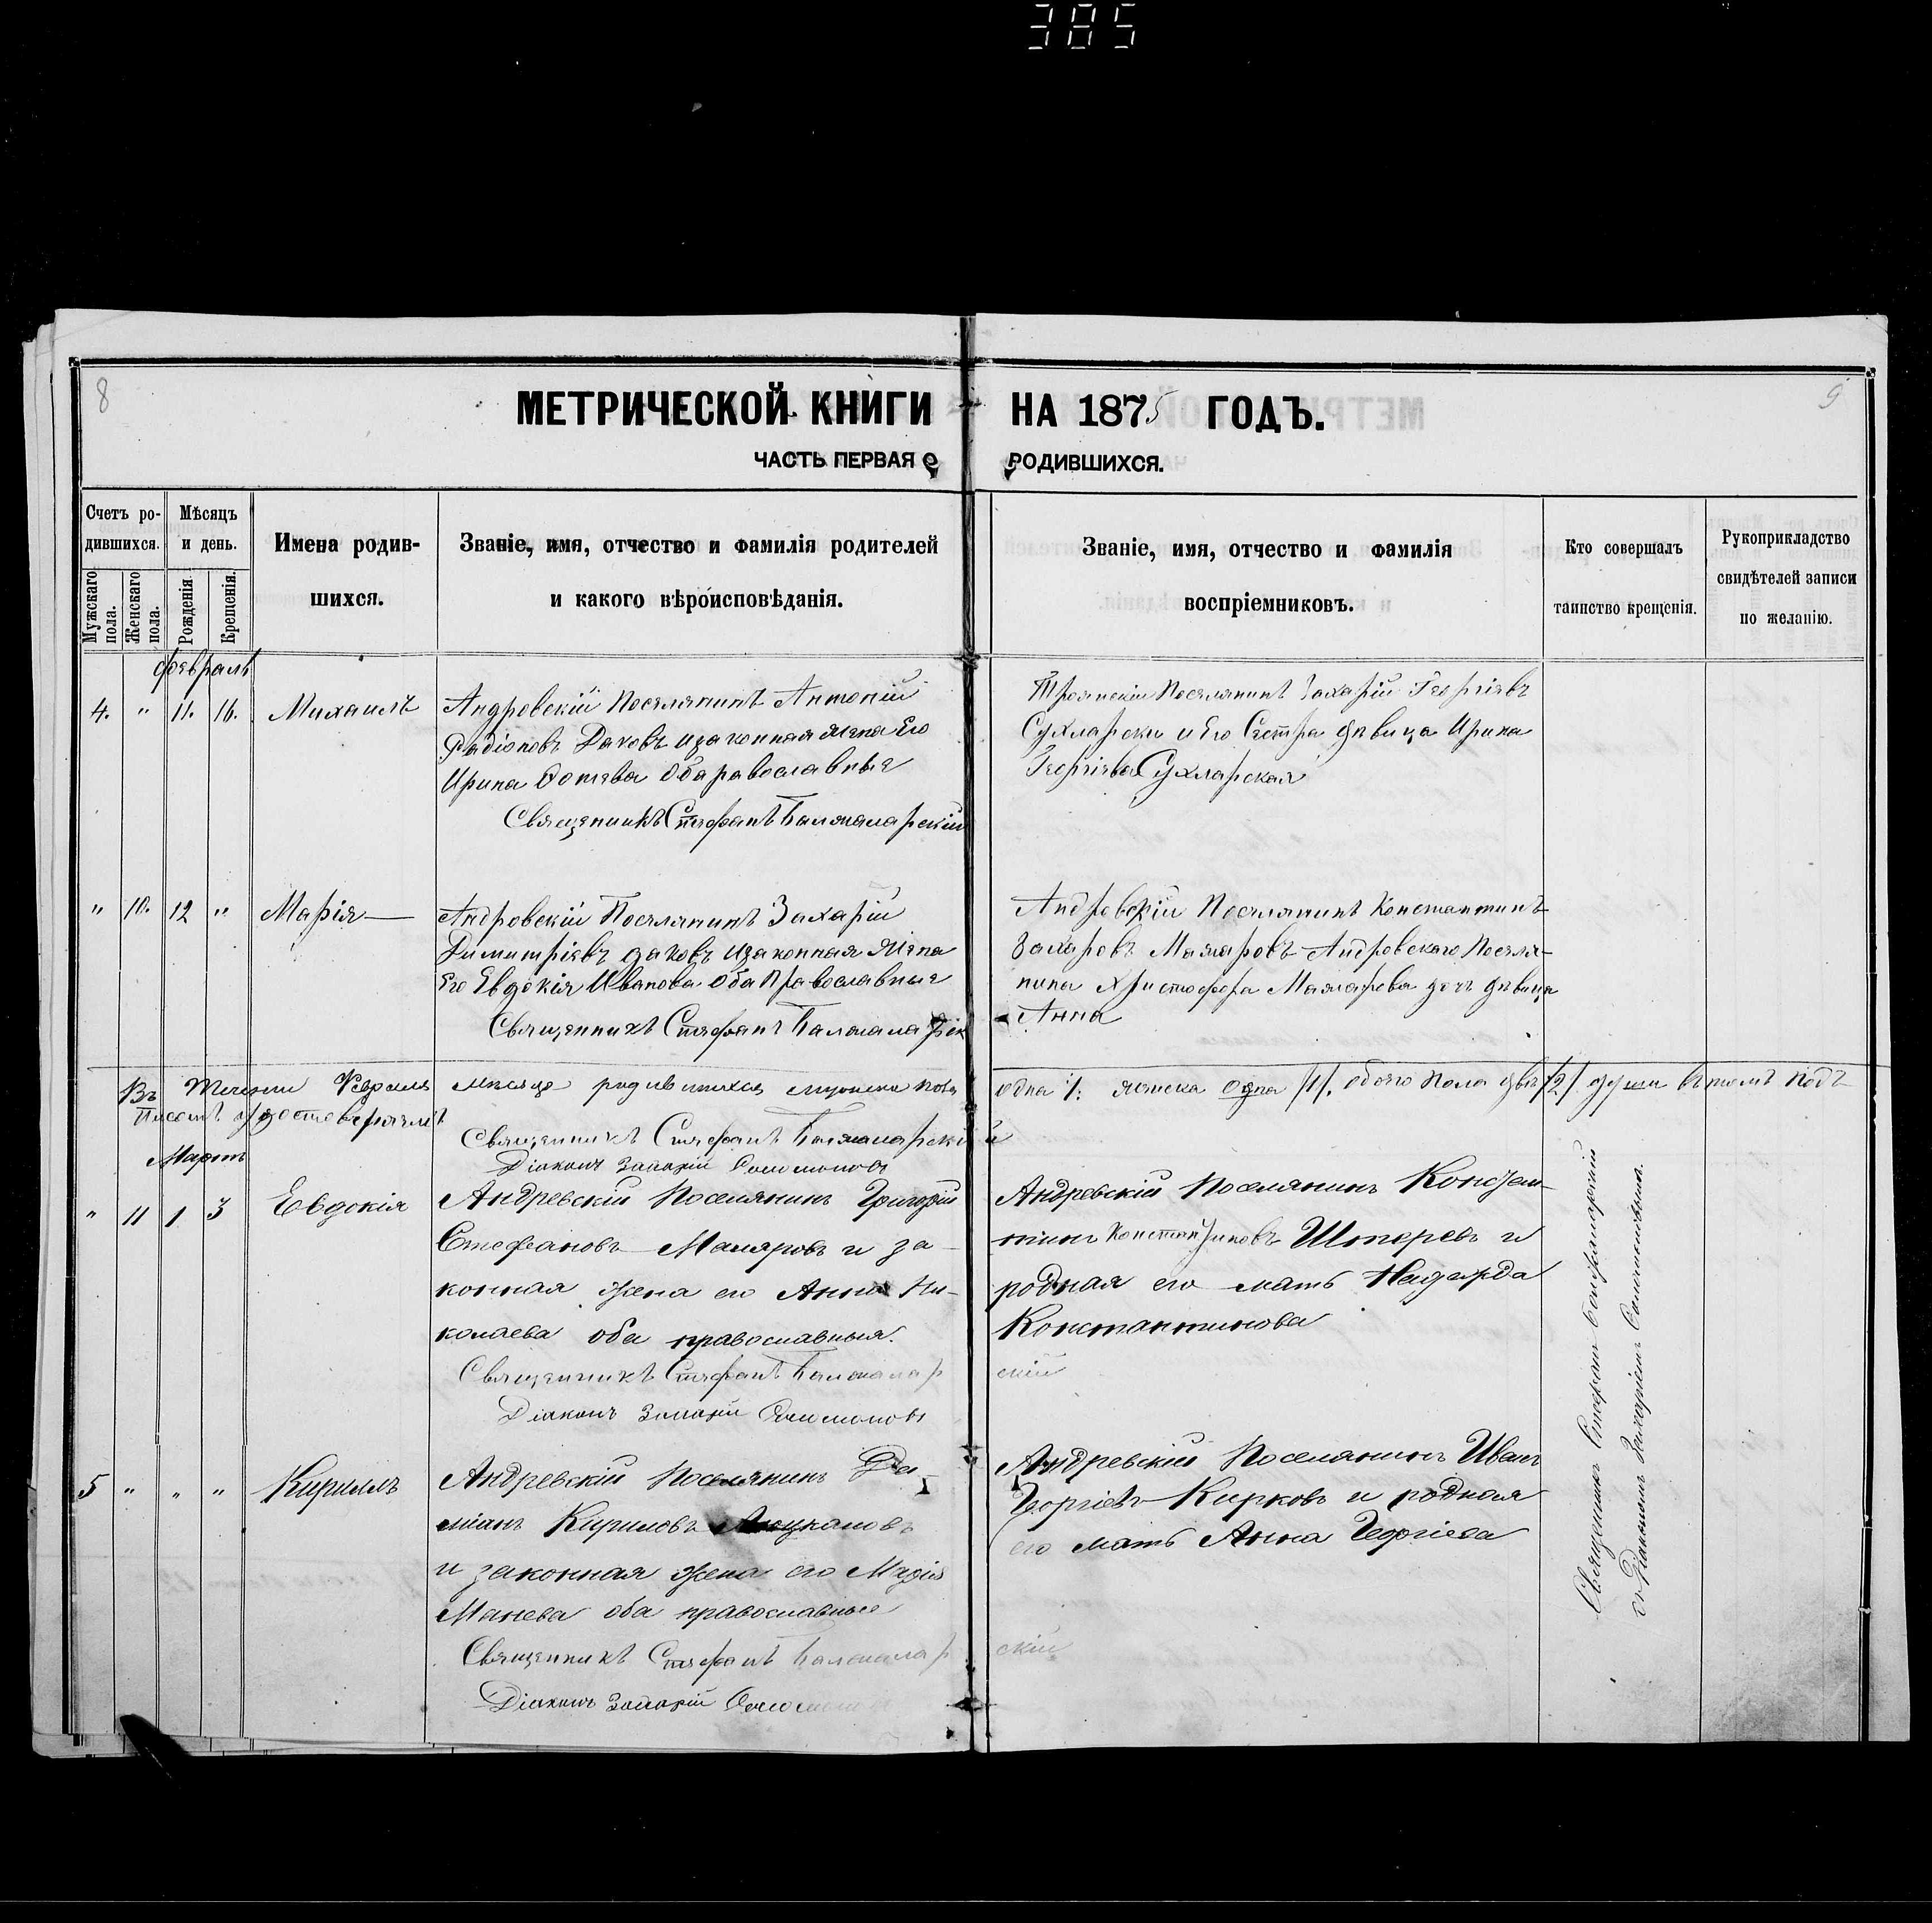 385
8
9
МЕТРИЧЕСКОЙ КНИГИ НА 1875 ГОДЪ.
ЧАСТЬ ПЕРВАЯ О РОДИВШИХСЯ.
Счетъ ро-
дившихся.
Мужскаго пола.
Женскаго пола.
Мѣсяцъ
и день.
Рожденія
Крещенія.
Имена родив-
шихся.
Званіе, имя, отчество и фамилія родителей
и какого вѣроисповѣданія.
Званіе, имя, отчество и фамилія
воспріемниковъ.
Кто совершалъ
таинство крещенія.
Рукоприкладство
свидѣтелей записи
по желанію.
4. " 11. 16.
Михаилъ
Андровскій Поселянинъ Антоній
Радіоновъ Даковъ изаконная жена Его
Ирина Оба равославные
Священникъ Стефанъ
Троянскій Поселянинъ Захарій Георгіевъ
и Его Сестра дѣвица Ирина
Георгіева Сухларская
" 10. 12 "
Марія
Андровскій Поселянинъ Захарій
Димитріевъ даковъ изаконная жена
Его Евдокія Иванова Оба Православные
Священникъ Стефанъ
Андровскій Поселянинъ Константинъ
Захаровъ Маларовъ Андровскаго Поселя-
нина Христофора Маларова дочъ дѣвица
Анна
Въ Течении Февраля мѣсяца родившихся мужска пола
одна 1. женска одна /1/. обоего пола двѣ /2/ души втомъ подъ
Писомъ удостоверяемъ
Священникъ Стефанъ
Діаконъ Захарій Соломоновъ
Мартъ
" 11 1 3
Евдокія
Андревскій Поселянинъ Григорій
Стефановъ Маляровъ и за-
конная жена его Анна Ни-
колаева оба православныя.
Священникъ Стефанъ
Діаконъ Захарій Соломоновъ
Андревскій Поселянинъ Констан-
тинъ Константиновъ и
родная его мать Надежда
Константинова
скій
5 " " "
Кириллъ
Андревскій Поселянинъ Да
міанъ Кириловъ
и законная жена его Марія
Манева оба православные
Священникъ Стефанъ
Діаконъ Захарій
Андревскій Поселянинъ Иванъ
Георгіевъ Кирковъ и родная
его мать Анна Георгіева
скій
Священникъ Стефанъ
съ Діакономъ Захаріемъ Соломоновымъ.